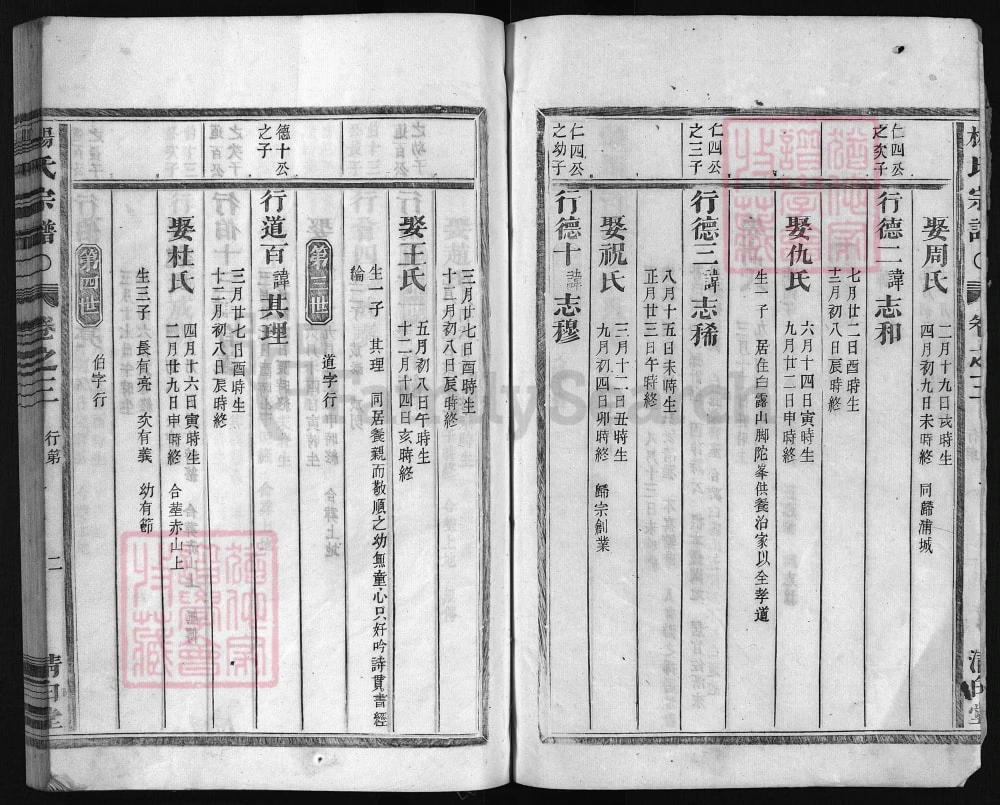 楊氏宗譜
卷之三
清白堂
娶周氏
二月十九日戌時生
四月初九日未時終
同歸浦城
仁四公
之次子
行德二諱志和
七月廿二日酉時生
十二月初八日辰時終
娶仇氏
六月十四日寅時生
九月廿二日申時終
生一子
居住白露山脚陀峯供養治家以全孝道
仁四公
之三子
行德三諱志稀
八月十五日未時生
正月廿三日午時終
娶祝氏
三月十二日丑時生
九月初四日卯時終
歸宗創業
仁四公
之幼子
行德十諱志穆
三月廿七日酉時生
十二月初八日辰時終
娶王氏
五月初八日午時生
十二月十四日亥時終
生一子
其理
同居養親而敬順之幼無童心只好吟詩貫書經
綸
第三世
道字行
德十公
之子
行道百諱其理
三月廿七日酉時生
十二月初八日辰時終
娶杜氏
四月十六日寅時生
二月廿九日申時終
合葬赤山上
生三子
長有亮
次有義
幼有節
第四世
伯字行
楊氏宗譜
卷之三
行第
二
清白堂